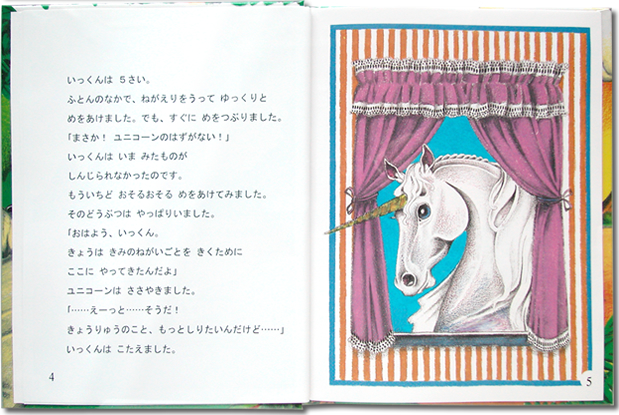 いっくんは 5さい。
ふとんのなかで、ねがえりをうって ゆっくりと
めをあけました。でも、すぐに めをつぶりました。
「まさか！ ユニコーンのはずがない！」
いっくんは いま みたものが
しんじられなかったのです。
もういちど おそるおそる めをあけてみました。
そのどうぶつは やっぱりいました。
「おはよう、いっくん。
きょうは きみのねがいごとを きくために
ここに やってきたんだよ」
ユニコーンは ささやきました。
「……えーっと……そうだ！
きょうりゅうのこと、もっとしりたいんだけど……」
いっくんは こたえました。
4
5